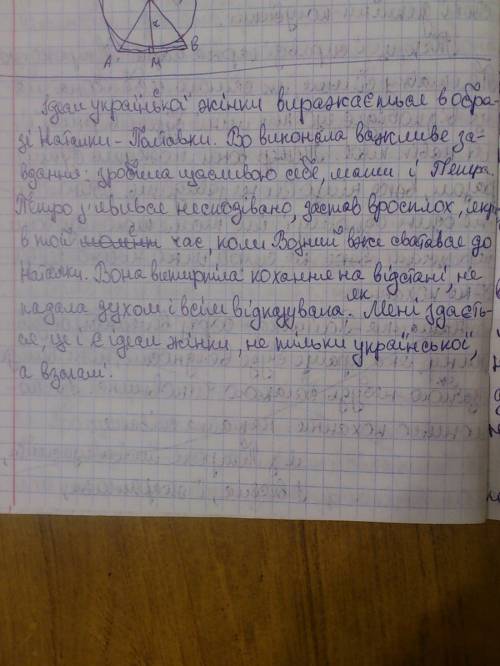 А М В
Ідеал української жінки виражається в обра-
зі Наталки-Полтавки. Во виконала важливе за-
вдання: зробила щасливою себе, маши і Петра.
Петро з'явився несподівано, застав вросплох, якраз
в той момент час, коли Возний вже сватався до
Наталки. Вона витерпіла кохання на відстані, не
падала духом і всім відказувала. Мені здаєть-
ся як це і є ідеал жінки, не тільки української,
а взагалі.